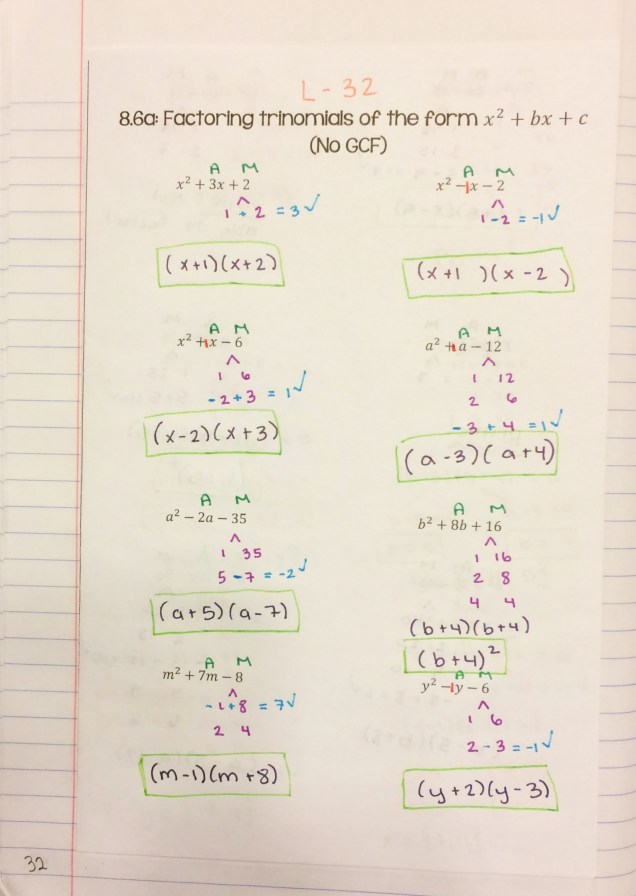 L-32
8.6a: Factoring trinomials of the form x² + bx + c
(No GCF)
A M
x² + 3x + 2
1 + 2 = 3 ✓
(x+1)(x+2)
A M
x² -1x - 2
1 - 2 = -1 ✓
(x +1 )(x - 2 )
A M
x² +1x - 6
1 6
- 2 + 3 = 1 ✓
(x-2)(x+3)
A M
a² +1a - 12
1 12
2 6
- 3 + 4 = 1 ✓
(a -3)(a+4)
A M
a² - 2a - 35
1 35
5 - 7 = -2 ✓
(a+5)(a-7)
A M
b² + 8b + 16
1 16
2 8
4 4
(b+4)(b+4)
(b+4)²
A M
m² + 7m - 8
-1+8 = 7 ✓
2 4
(m-1)(m+8)
A M
y² -1y - 6
1 6
2 - 3 = -1 ✓
(y+2)(y-3)
32